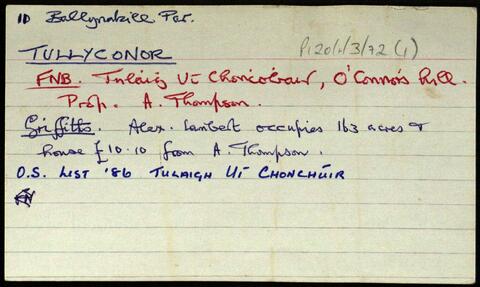 10 Ballynakill Par.
P120/1/3/72 (1)
TULLYCONOR
FNB. Tulaig Uí Choncobair, O'Connor's hill.
Prop. A. Thompson.
Griffiths. Alex. Lambert occupies 163 acres +
house £10.10 from A. Thompson.
O.S. LIST '86 TULAIGH UÍ CHONCHÚIR